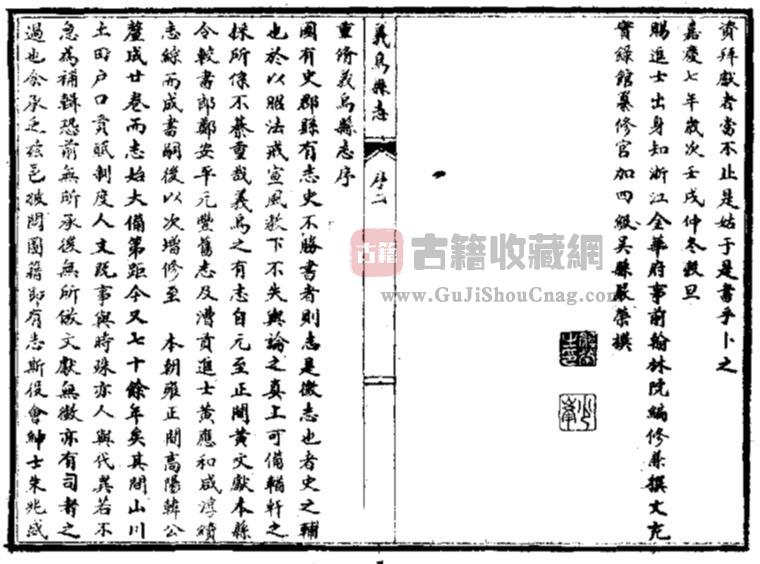 資拜獻者當不止是姑于是書乎卜之
嘉慶七年歲次壬戌仲冬穀旦
賜進士出身知浙江金華府事前翰林院編修兼撰文充
實錄館纂修官加四級吳縣嚴榮撰
義烏縣志
序二
重脩義烏縣志序
國有史郡縣有志史不勝書者則志是徵志也者史之輔
也於以昭法戒宣風教下不失輿論之真上可備輶軒之
採所係不綦重哉義烏之有志自元至正間黃文獻本縣
令較書郎鄭安平元豐舊志及漕貢進士黃應和咸淳續
志綜而成書嗣後以次增修至 本朝雍正間高陽韓公
釐成廿卷而志始大備第距今又七十餘年矣其間山川
土田戶口貢賦制度人文既事與時殊亦人與代異若不
急為補輯恐前無所承後無所倣文獻無徵亦有司者之
過也余承乏茲邑披閱圖籍即有志斯役會紳士朱兆咸
古籍 古籍收藏網
www.GuJiShouCnag.com